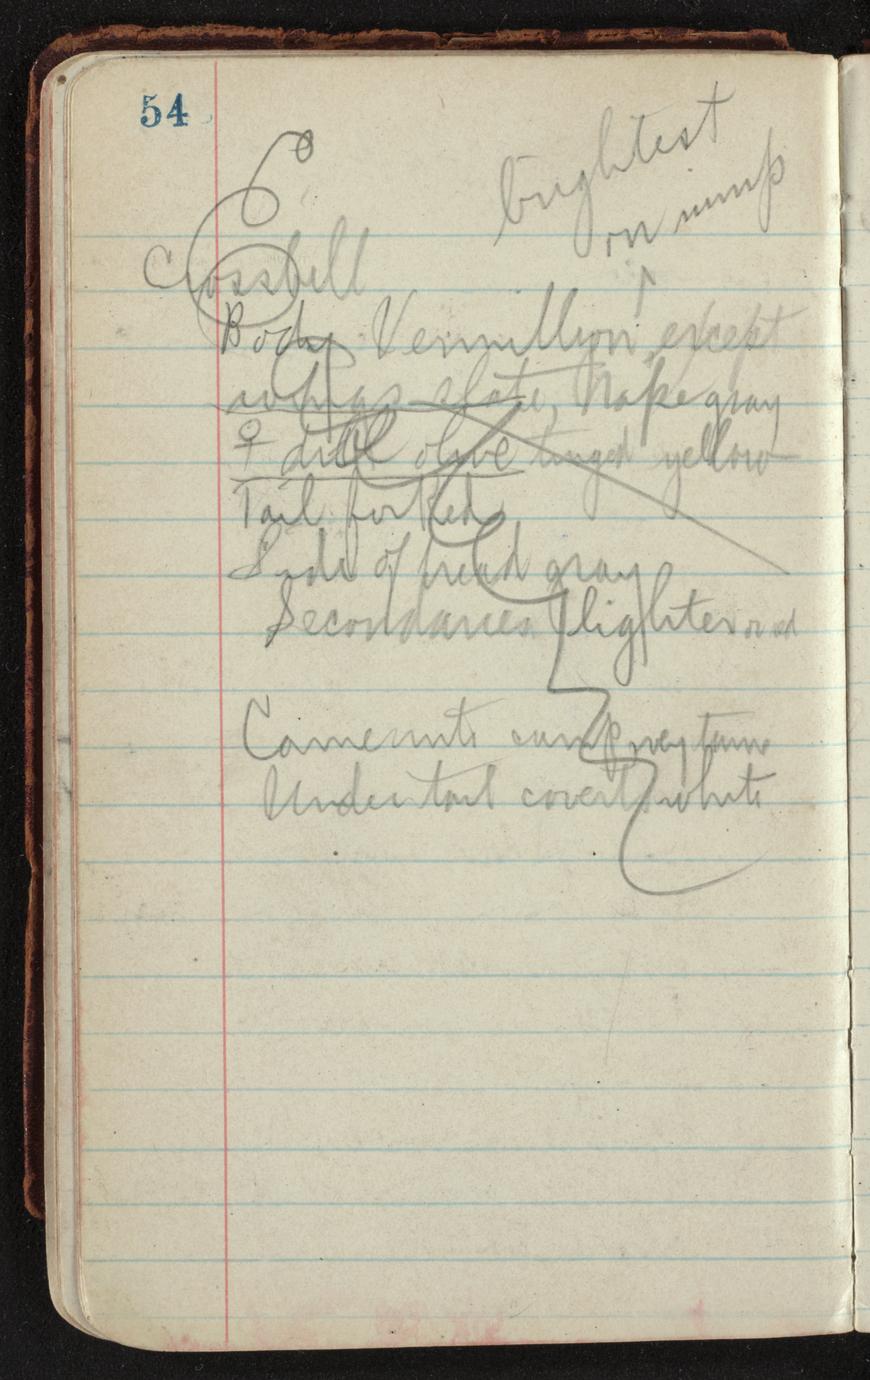 54
brightest
on rump
Crossbill
Body Vermillion except
wings slate, Nape gray
♀ dull olive tinged yellow
Tail forked
Side of head gray
Secondaries lighter
Came into camp very tame
Under tail coverts white